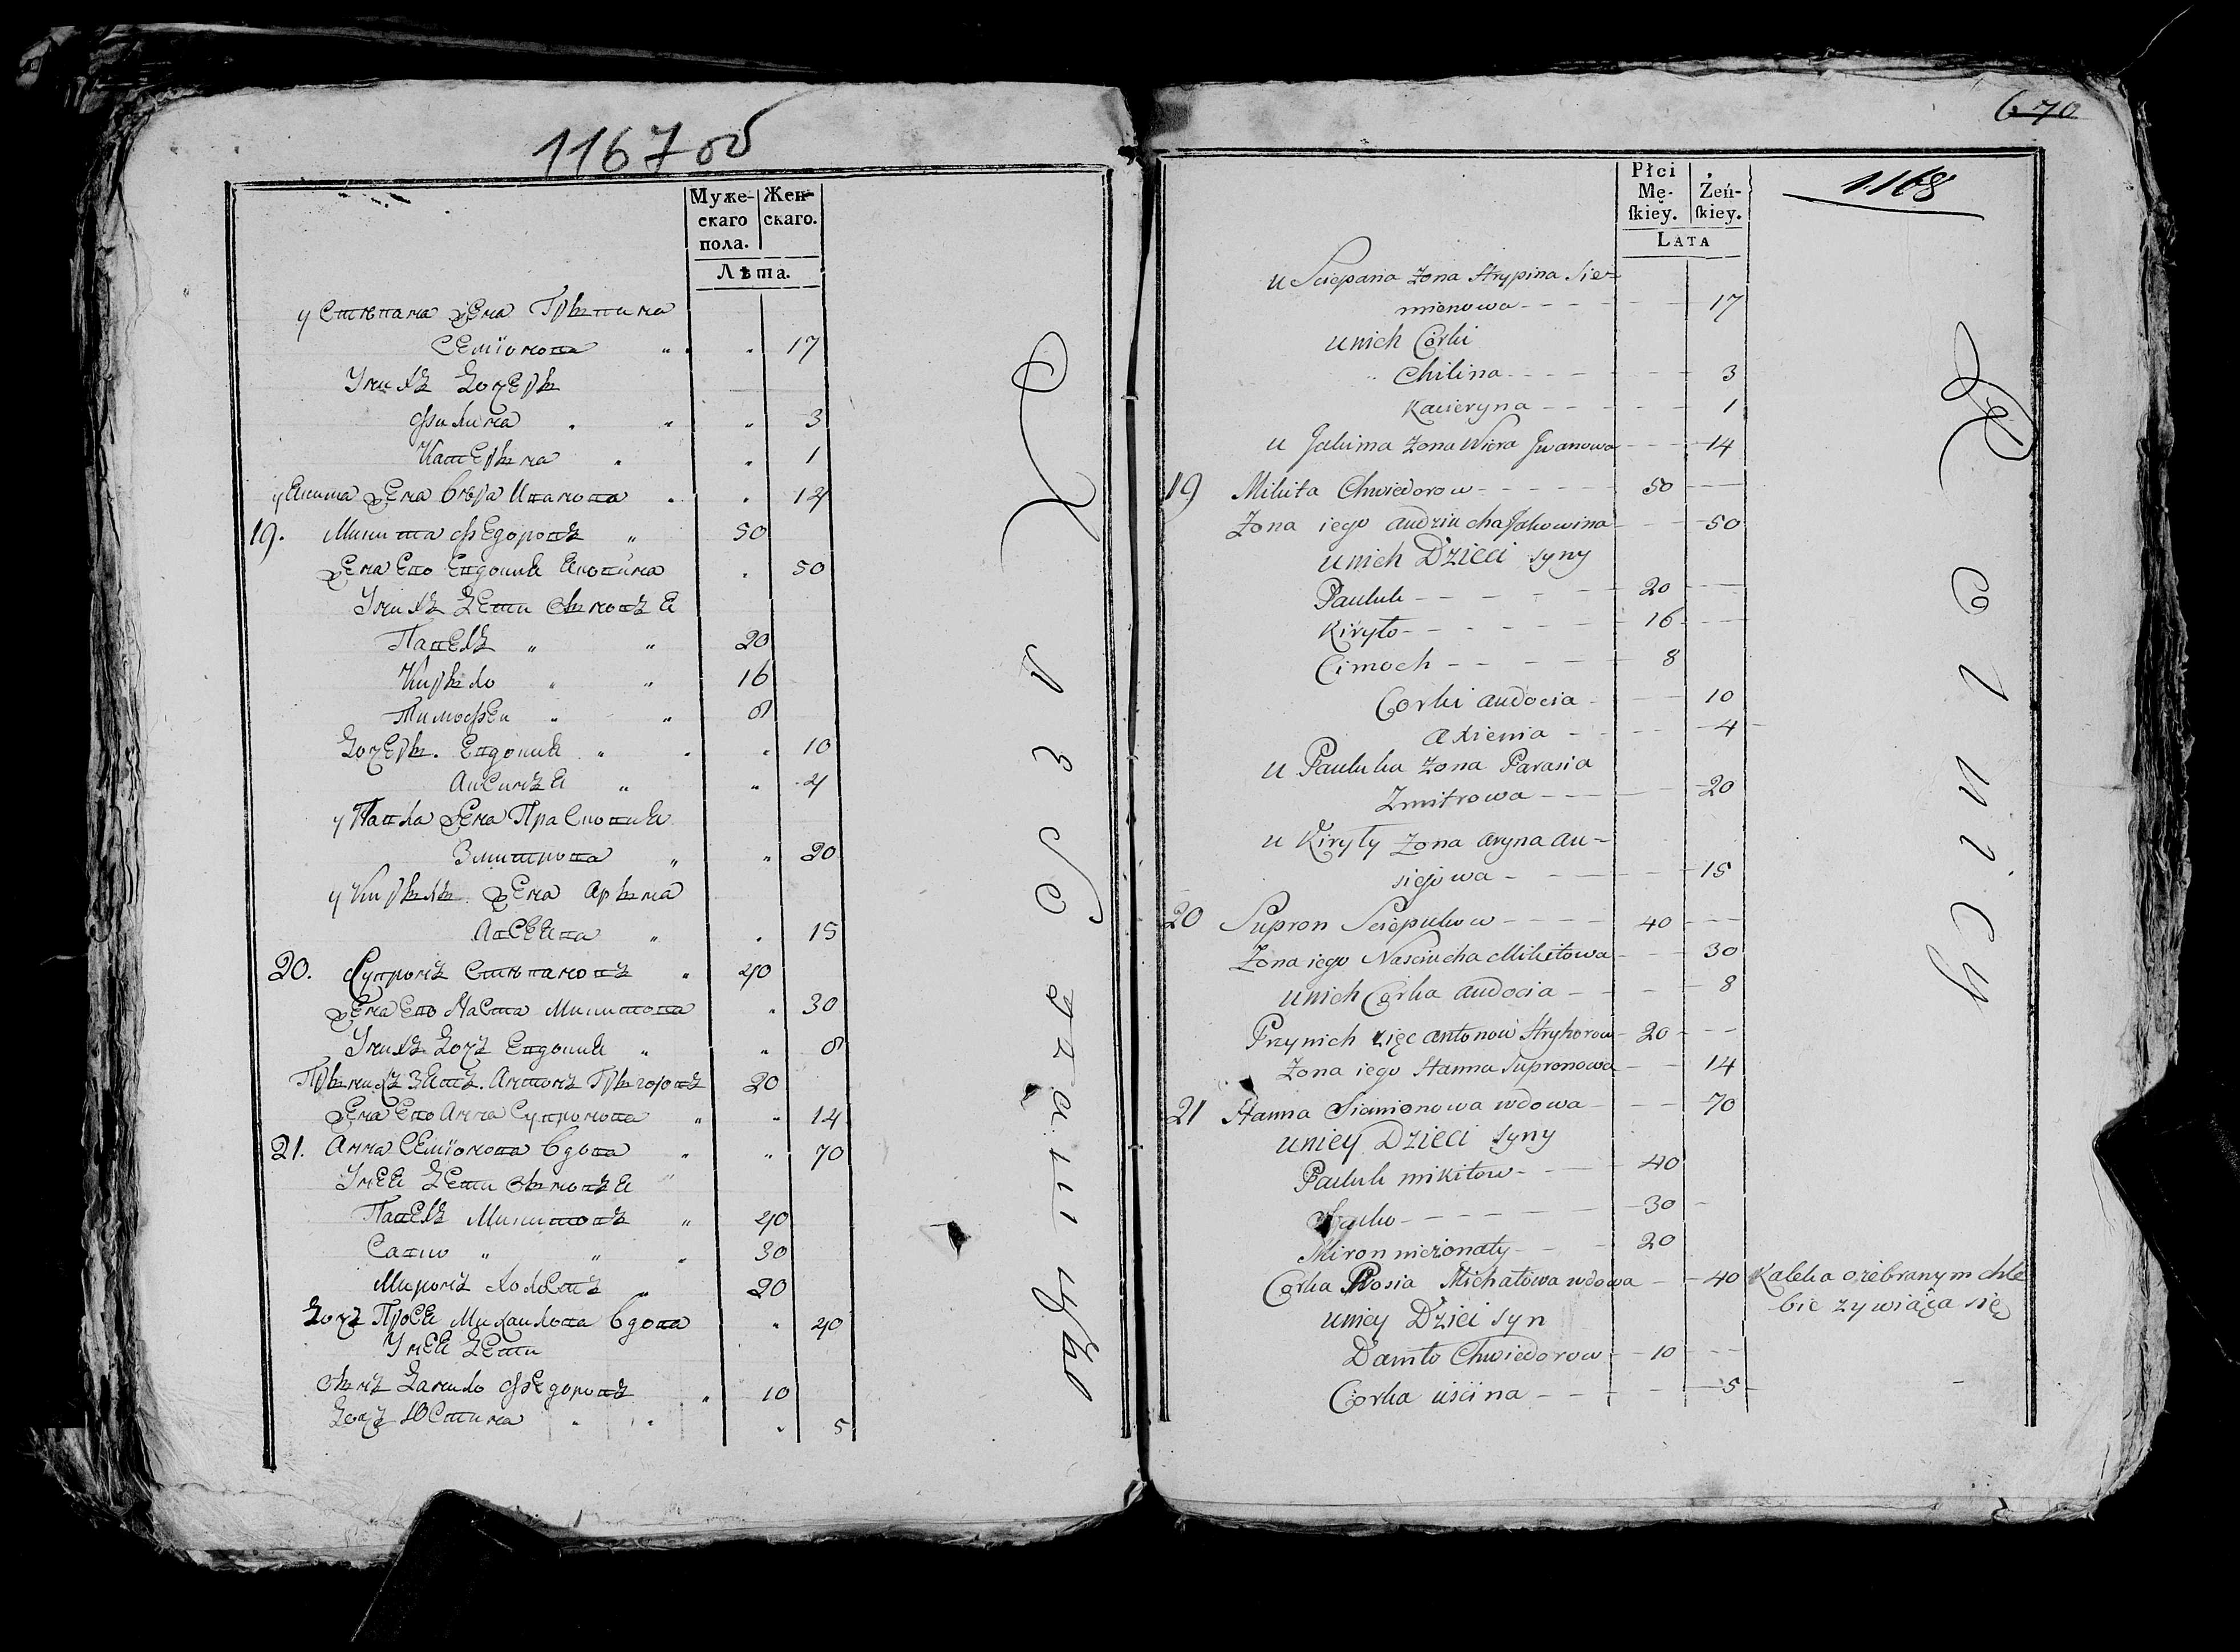 1167об
Муже-
скаго
пола.
Жен-
скаго.
Лѣта.
у Стѣпана жена Грыпина
Семїонова " " 17
У них дочеры
Филина " " " 3
Катерына " " 1
у Якима жена Вѣра Иванова " " 14
19. Микита Федоровъ " 50
жена ево Евдокия Яковина " 50
У них дети сыновъя
Павелъ " " 20
Кирыло " " 16
Тимофеи " " 8
дочеры. Евдокия " " " 10
Аксинъя " " 4
у Павла жена Прасковия
Змитрова " " 20
у Кирылы жена Арына
Авсеива " " 15
20. Супронъ Стѣпановъ " 40
жена ево Наста Микитова " 30
У нихъ дочъ Евдокия " " 8
Прынихъ зятъ. Антонъ Грыгоровъ 20
жена ево Анна Супронова " " 14
21. Анна Семїонова вдова " " 70
У нея дети сыновъя "
Павелъ Микитовъ " 40
Савко " " " 30
Миронъ холостъ " 20
дочъ Прося Михаилова вдова " 40
У нея дети
сынъ Данило Федоровъ " 10
дочъ Юстина " " " 5
670
1168
Płci
Mę-
skiey.
Żeń-
skiey.
LATA
u Sciepana żona Hrypina Sie-
mionowa 17
unich Corki
Chilina 3
Kacieryna 1
u Jakima żona Wiera Jwanowa 14
19 Mikita Chwiedorow 50
Żona iego audziucha Jakowina 50
unich Dzieci syny
Pauluk 20
Kiryło 16
Cimoch 8
Corki audocia 10
axienia 4
u Pauluka żona Parasia
Zmitrowa 20
u Kiryły żona aryna au-
siejowa 15
20 Supron Sciepukow 40
Żona iego Nasciucha Mikitowa 30
unich Corka audocia 8
Przynich zięc antonow Hryhorow 20
Żona iego Hanna Supronowa 14
21 Hanna Siemionowa wdowa 70
uniey Dzieci syny
Pauluk mikitow 40
Sauko 30
Miron nieżonaty 20
Corka Prosia Michałowa wdowa 40 Kaleka ożebranym chle
bie zywiąca się
uniey Dzieci syn
Daniło Chwiedorow 10
Corka uścina 5